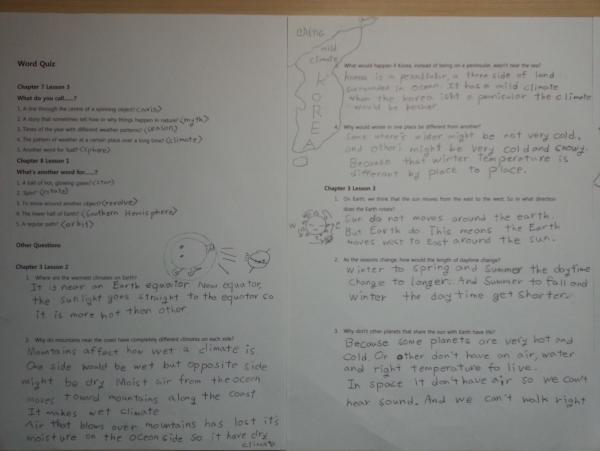 Word Quiz
Chapter 7 Lesson 3
What do you call......?
1. A line through the centre of a spinning object? (axis)
2. A story that sometimes tell how or why things happen in nature? (myth)
3. Times of the year with different weather patterns? (season)
4. The pattern of weather at a certain place over a long time? (climate)
5. Another word for 'ball'? (Sphere)
Chapter 8 Lesson 1
What's another word for......?
1. A ball of hot, glowing gases? (star)
2. 'Spin' (rotate)
3. To move around another object (revolve)
4. The lower half of Earth? (Southern Hemisphere)
5. A regular path? (orbit)
Other Questions
Chapter 3 Lesson 2
1. Where are the warmest climates on Earth?
It is near an Earth equator. Near equator,
the sunlight goes straight to the equator so
it is more hot then other
2. Why do mountains near the coast have completely different climates on each side?
Mountains affect how wet a climate is
One side would be wet but opposite side
might be dry Moist air from the ocean
moves toward mountains along the coast
It makes wet climate
Air that blows over mountains has lost it's
moisture on the ocean side so it have dry
climate
mild
climate
KOREA
What would happen if Korea, instead of being on a peninsular, wasn't near the sea?
Korea is a peninsular, a three side of land
surrounded in ocean. It has a mild climate
when the korea isn't a penincular the climate
would be
4. Why would winter in one place be different from another?
Some where's winter might be not very cold,
and others might be very cold and snowy.
Because that winter temperature is
different by place to place.
Chapter 3 Lesson 3
1. On Earth, we think that the sun moves from the east to the west. So in what direction
does the Earth rotate?
Sun do not moves around the earth.
But Earth do. This means the Earth
moves west to East around the sun.
2. As the seasons change, how would the length of daytime change?
Winter to spring and Summer the daytime
change to longer. And Summer to fall and
winter the daytime get shorter.
3. Why don't other planets that share the sun with Earth have life?
Because some planets are very hot and
cold. Or other don't have an air, water
and right temperature to live.
In space it don't have air so we can't
hear sound. And we can't walk right